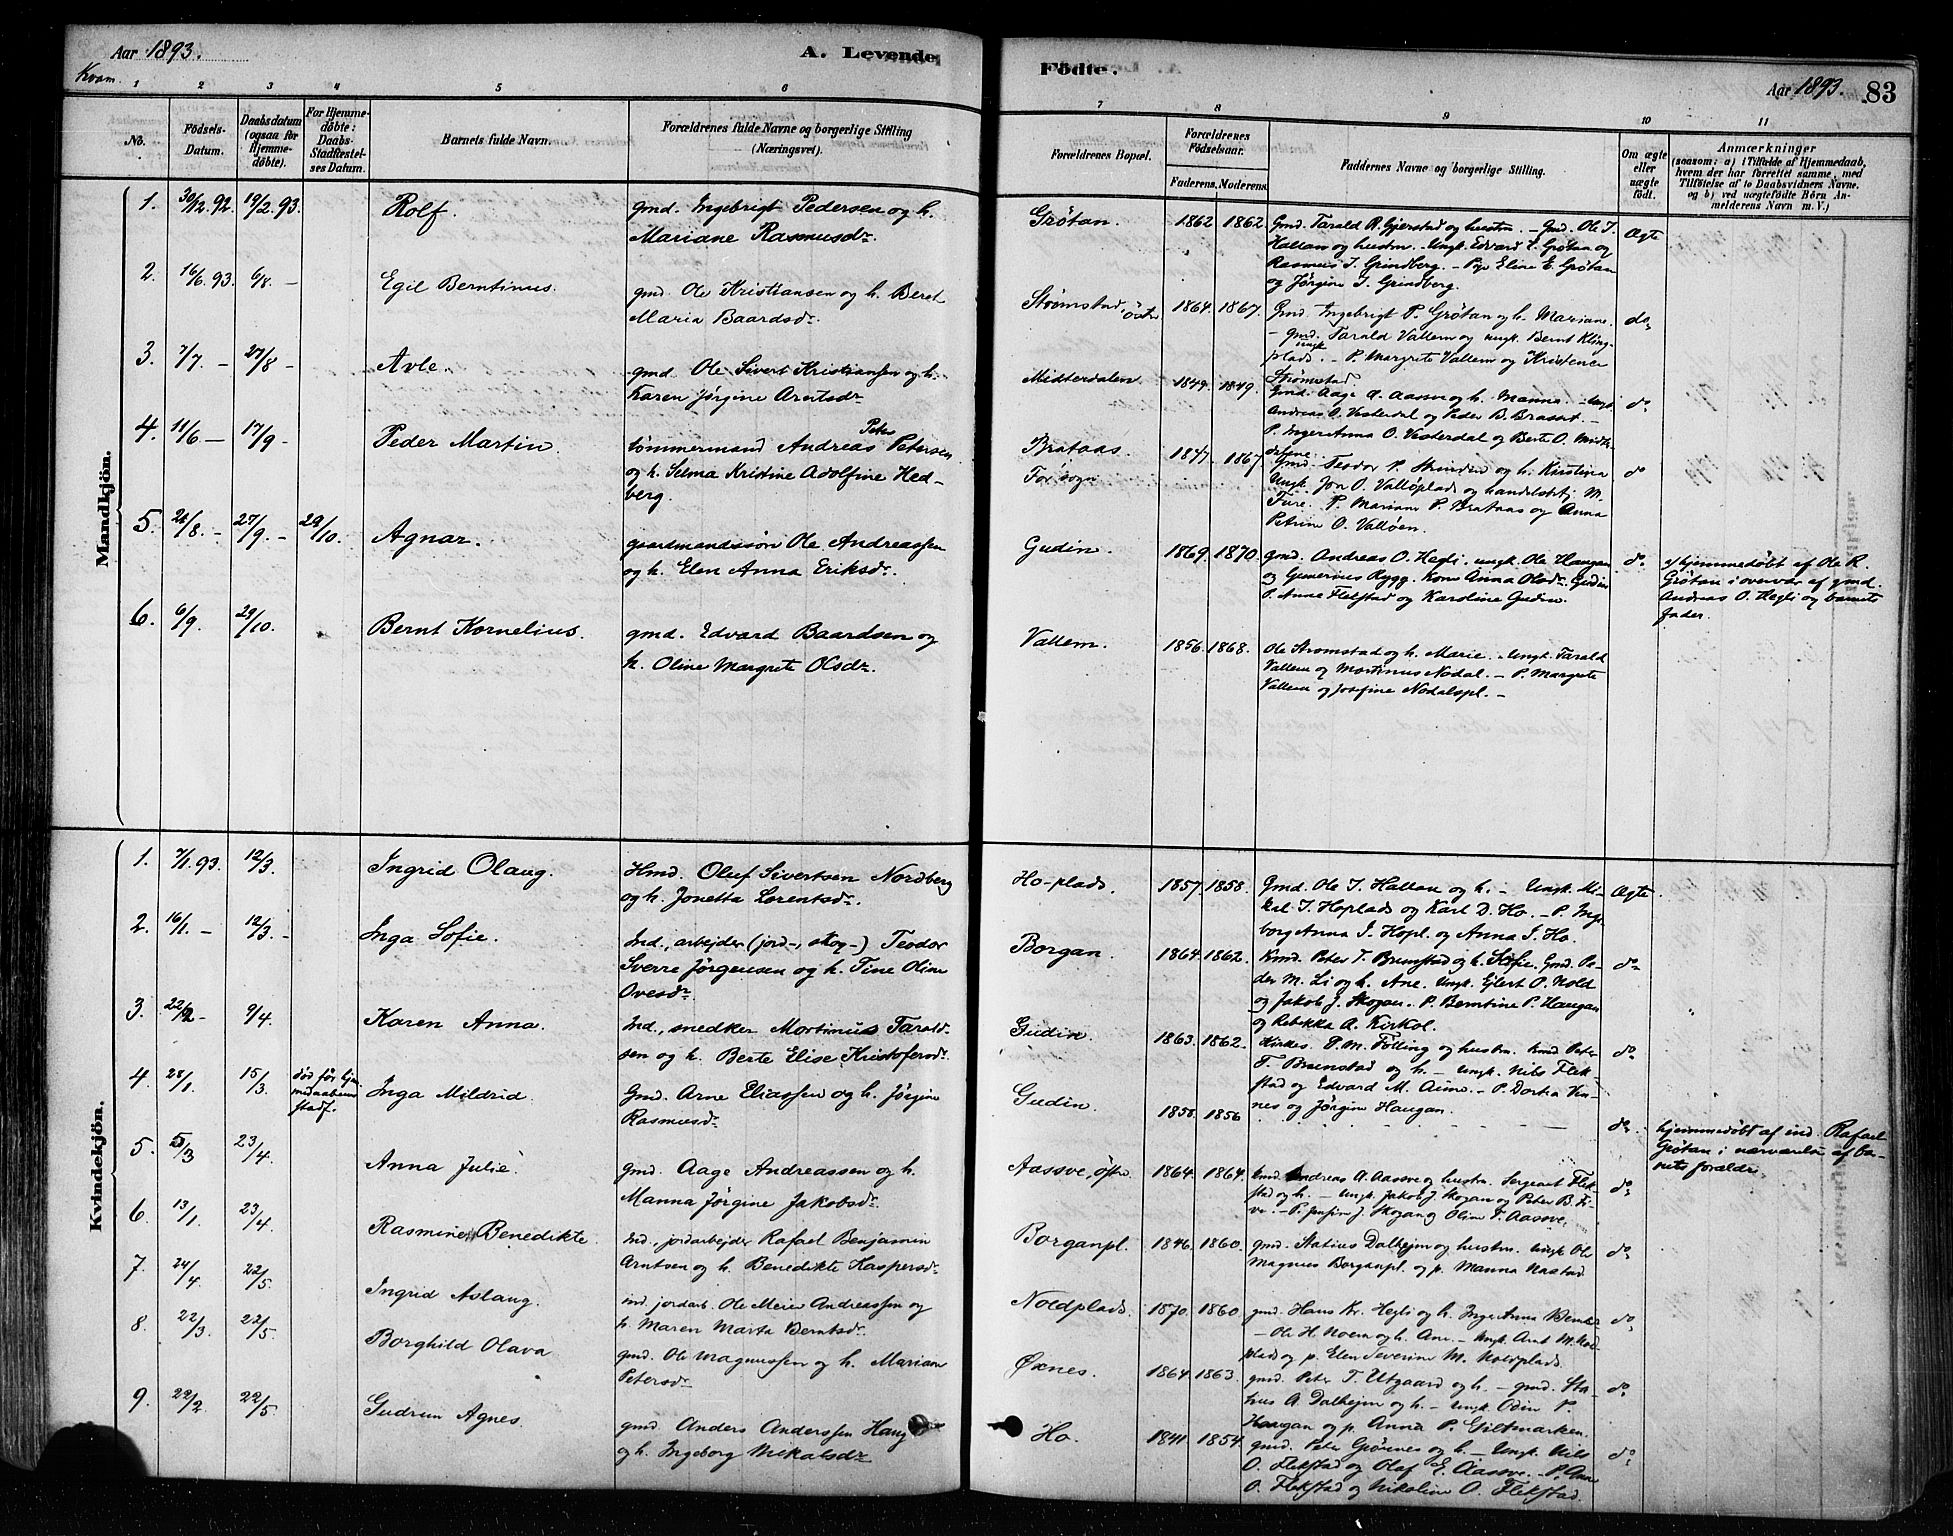 Aar 1893.
Kvam.
A. Levende
Fødte.
Aar 1893.
83
1 2 3 4 5 6 7 8 9 10 11
No.
Fødsels-Datum.
Daabsdatum (ogsaa for Hjemmedøbte).
For Hjemmedøbte: Daabs-Stadfæstelses Datum.
Barnets fulde Navn.
Forældrenes fulde Navne og borgerlige Stilling (Næringsvei).
Forældrenes Bopæl.
Forældrenes Fødselsaar.
Faderens. Moderens.
Faddernes Navne og borgerlige Stilling.
Om ægte eller uægte født.
Anmærkninger
(saasom: a) i Tilfælde af Hjemmedaab, hvem der har forrettet samme, med Tilføielse af to Daabsvidners Navne. og b) ved uægtefødte Børn Anmelderens Navn m. V.)
Mandkjøn.
1. 30/12.92. 19/2.93. Rolf. gmd. Ingebrigt Pedersen og h.
Mariane Rasmusdr.
Grøtan. 1862 1862 Gmd. Tarald R. Gjerstad og hustru. – Gmd. Ole T.
Hallam og hustru. Ungk. Edvard E. Grøtan og
Rasmus I. Grindberg. – Pige Eline E. Grøtan
og Jørgine I. Grindberg.
Ægte
2. 16/6.93. 6/8 – Egil Berntinus. gmd. Ole Kristiansen og h. Beret
Maria Baardsdr.
Strømstad, östre 1864. 1867. Gmd. Ingebrigt P. Grøtan og h. Mariane.
– gmd. Tarald Vallem og ungk. Bernt Kling-
plads. – P. Margrete Vallem og ungk Kristence
Strømstad.
do
3. 7/7. – 27/8 – Avle. gmd. Ole Sivert Kristiansen og h.
Karen Jørgine Arntsdr
Midterdalen 1849. 1849. Gmd. Aage A. Aasve og h. Manna. – Ungk.
Andreas O. Vesterdal og Peder B. Braset. –
P. Inger Anna O. Vesterdal og Berte O. Midt-
do
4. 11/6 – 17/9 – Peder Martin. tømmermand Andreas Peter Petersen
og h. Selma Kristine Adolfine Hed-
berg.
Brataas.
For. sogn
1847. 1867. Gmd. Teodor P. Strinden og h. Karstina
Ungk. Jon O. Valløplads og handelsbtj. M.
Ture. P. Mariane P. Brataas og Anna
Petrine O. Valløen.
do
5. 26/8. – 27/9. – 29/10. Agnar. gaardmandssøn Ole Andreassen
og h. Elen Anna Eriksdr.
Gudin. 1869. 1870. gmd. Andreas O. Hegli. ungk. Ole Haugan
og Gunerius Rygg. Kone Anna Olsdr. Gudin
P. Anne Flekstad og Karoline Gudin.
do
hjemmedøbt af Ole R.
Grøtan i overvær af gmd.
Andreas O. Hegli og barnets
fader.
6. 6/9. 29/10. Bernt Kornelius. gmd. Edvard Baardsen og
h. Oline Margrete Olsdr.
Vallem. 1856. 1868. Ole Strømstad og h. Marie. – Ungk. Tarald
Vallem og Mortinus Nodal. – P. Margrete
Vallem og Josefine Nodalspl. –
Kvindekjön.
1. 7/1.93. 12/3. Ingrid Olaug. Hmd. Oluf Sivertsen Nordberg
og h. Jonetta Lorentsdr.
Ho-plads. 1857. 1858. Gmd. Ole T. Hallam og h. – Ungk. Mi-
kal I. Hoplads og Karl D. Ho. – P. Inge
borg Anna I. Hopl. og Anna I. Ho.
Ægte
2. 16/1. – 12/3. – Inga Sofie. Ind., arbejder (jord-, skog-) Teodor
Sverre Jørgensen og h. Tine Oline
Ovesdr
Borgan. 1864. 1862. Kmd. Peter T. Brunstad og h. Sofie. Gmd. Pe-
der M. Li og h. Ane. Ungk. Ejlert O. Nold
og Jakob J. Skogan. P. Berntine P. Haugan
og Rebekka A. Kirkol.
do
3. 22/2 – 9/4. Karen Anna. Ind., snedker Mortinus Tarald-
sen og h. Berte Elise Kristofersdr.
Gudin. 1863. 1862. Kirkes. P. M. Følling og hustru. Kmd Peter
T. Brunstad og h. – ungk. Nils Flek-
stad og Edvard M. Aune. – P. Dortea Vin-
nes og Jørgine Haugan.
do
4. 28/1. 15/3. død før hjem
medaabens
stadf.
Inga Mildrid. Gmd. Arne Eliassen og h. Jørgine
Rasmusdr.
Gudin. 1858. 1856 do
hjemmedøbt af ind. Rafael
Grøtan i nærværelse af bar-
nets forældre.
5. 5/3 23/4. Anna Julie. gmd. Aage Andreassen og h.
Manna Jørgine Jakobsdr.
Aassve, östre 1864. 1864. kmd. Andreas A. Aasve og hustru. Sergeant Flek-
stad og h. – ungk. Jakob J. Skogan og Peter B. Fi-
ve. – P. Josefin J. Skogan og Oline T. Aasve.
do
6. 13/1. 23/4. Rasmine Benedikte. Ind., jordarbejder Rafael Benjamin
Arntsen og h. Benedikte Kaspersdr.
Borganpl. 1846. 1860. gmd. Statius Dalhejm og hustru. Ungk. Ole
Magnus Borganpl. og p. Manna Nastad.
do
7. 24/4. 22/5. Ingrid Aslaug. ind. jordarb. Ole Meier Andreassen og
h. Maren Marta Berntsdr.
Noldplads. 1870. 1860 gmd. Hans Kr. Hegli og h. Inger Anna
– Ole H. Noem og h. Ane. – Ungk. Arnt M. Nold-
plads og p. Elen Severine M. Noldplads.
do
8. 22/3. 22/5. Borghild Olava. gmd. Ole Magnussen og h. Mariane
Petersdr
Øxnes. 1864. 1863. gmd. Peter T. Utgaard og h. – gmd. Sta-
tius A. Dalhejm og h. – ungk. Odin P.
Haugan og p. Anna P. Giltmarken.
do
9. 22/2. 22/5. Gudrun Agnes. gmd. Anders Anderssen Haug
og h. Ingeborg Mekalsdr
Ho. 1841. 1854. gmd. Peter Grönnes og h. – Ungk. Nils
O. Flekstad og Olaf E. Aassve. – P. Ane
O. Flekstad og Nikoline O. Flekstad.
do